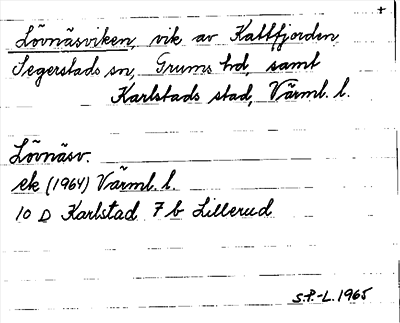 +
Lövnäsviken, vik av Kattfjorden,
Segerstads sn, Grums hd, samt
Karlstads stad, Värml. l.
Lövnäsv.
ek (1964) Värml. l.
10 D Karlstad 7 b Lillerud
S.P.-L. 1965